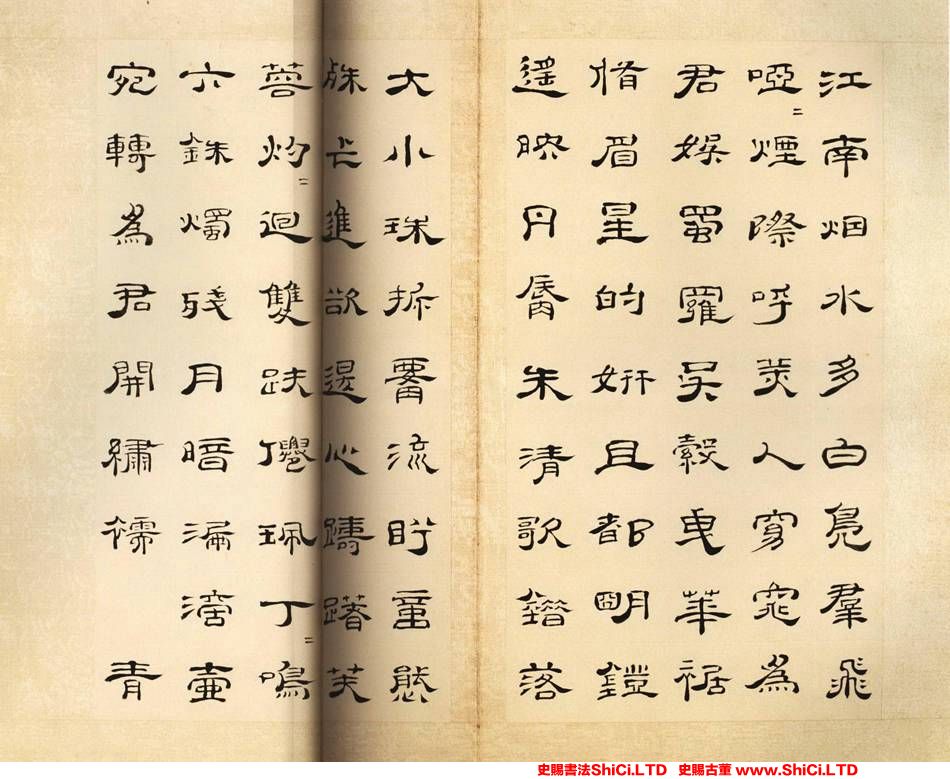 江南烟水多白鳧羣飛
啞=煙際呼美人窈窕為
君娛蜀羅吳縠曳華裾
脩眉星的妍且都明鐙
遙映丹脣朱清歌錯落
大小珠流盱態
殊乍進欲還心躊躇芙
蓉灼=迴雙趺僊珮丁=鳴
六銖燭殘月暗漏滴壺
宛轉為君開繡襦 青
史賜書法ShiCi.LTD 史賜古董 www.ShiCi.LTD